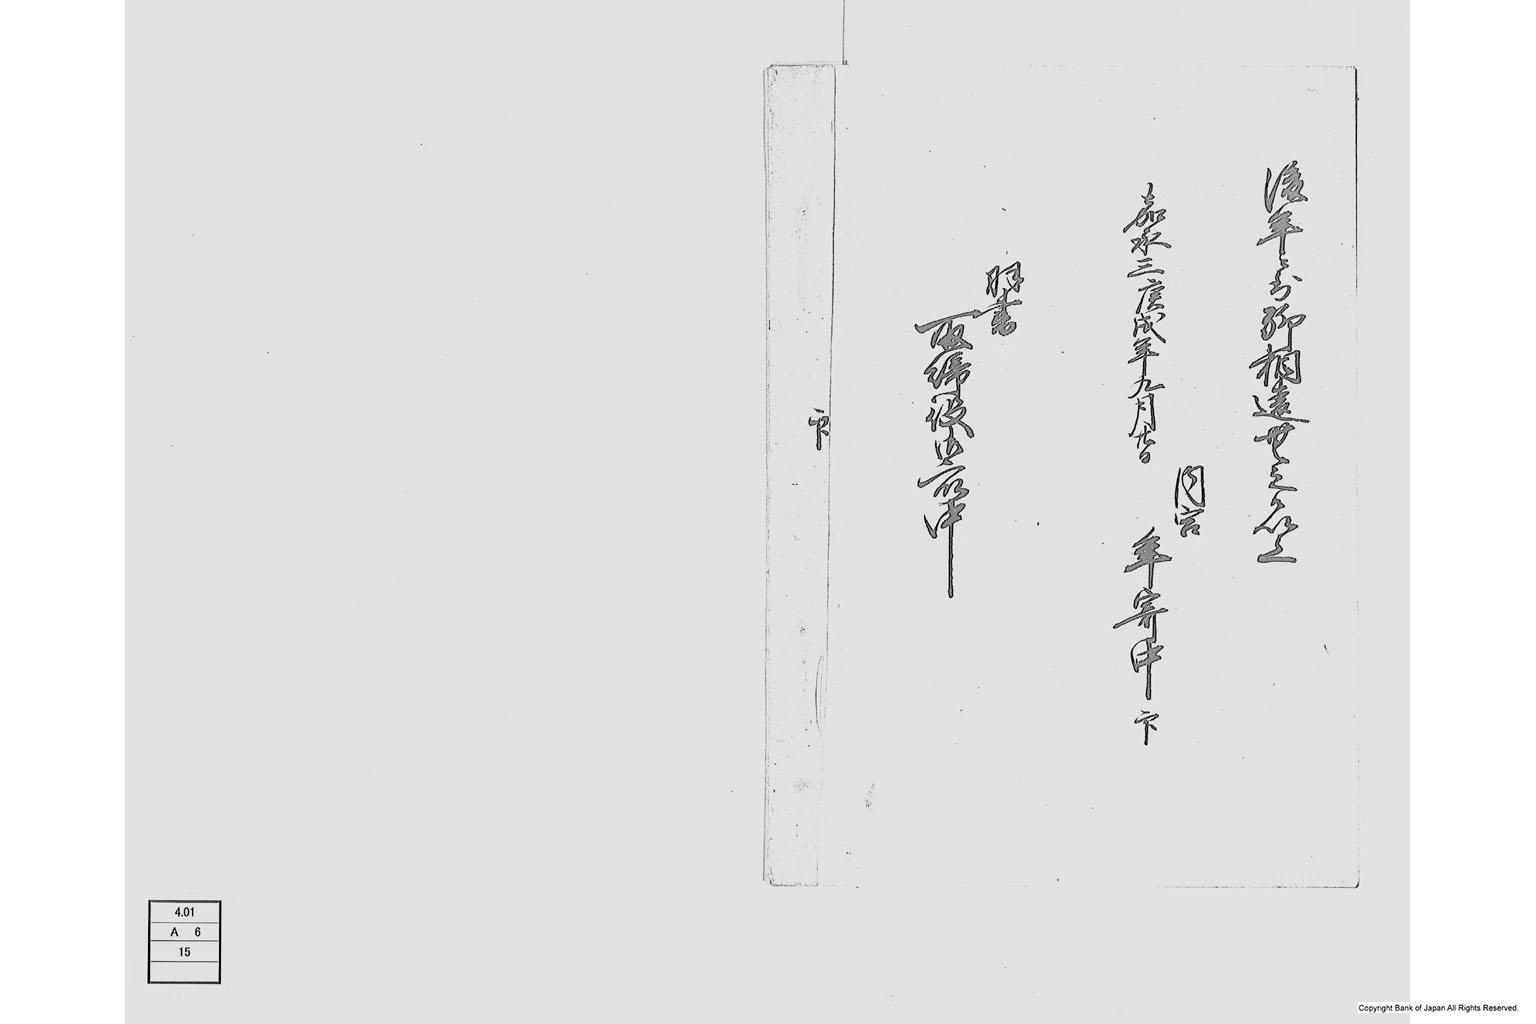 後年ニ至聊相違無之候以上
嘉永三庚戌年九月廿日
内宮
年寄中 印
羽書
取締役御衆中
印
4.01
A 6
15
Copyright Bank of Japan All Rights Reserved.